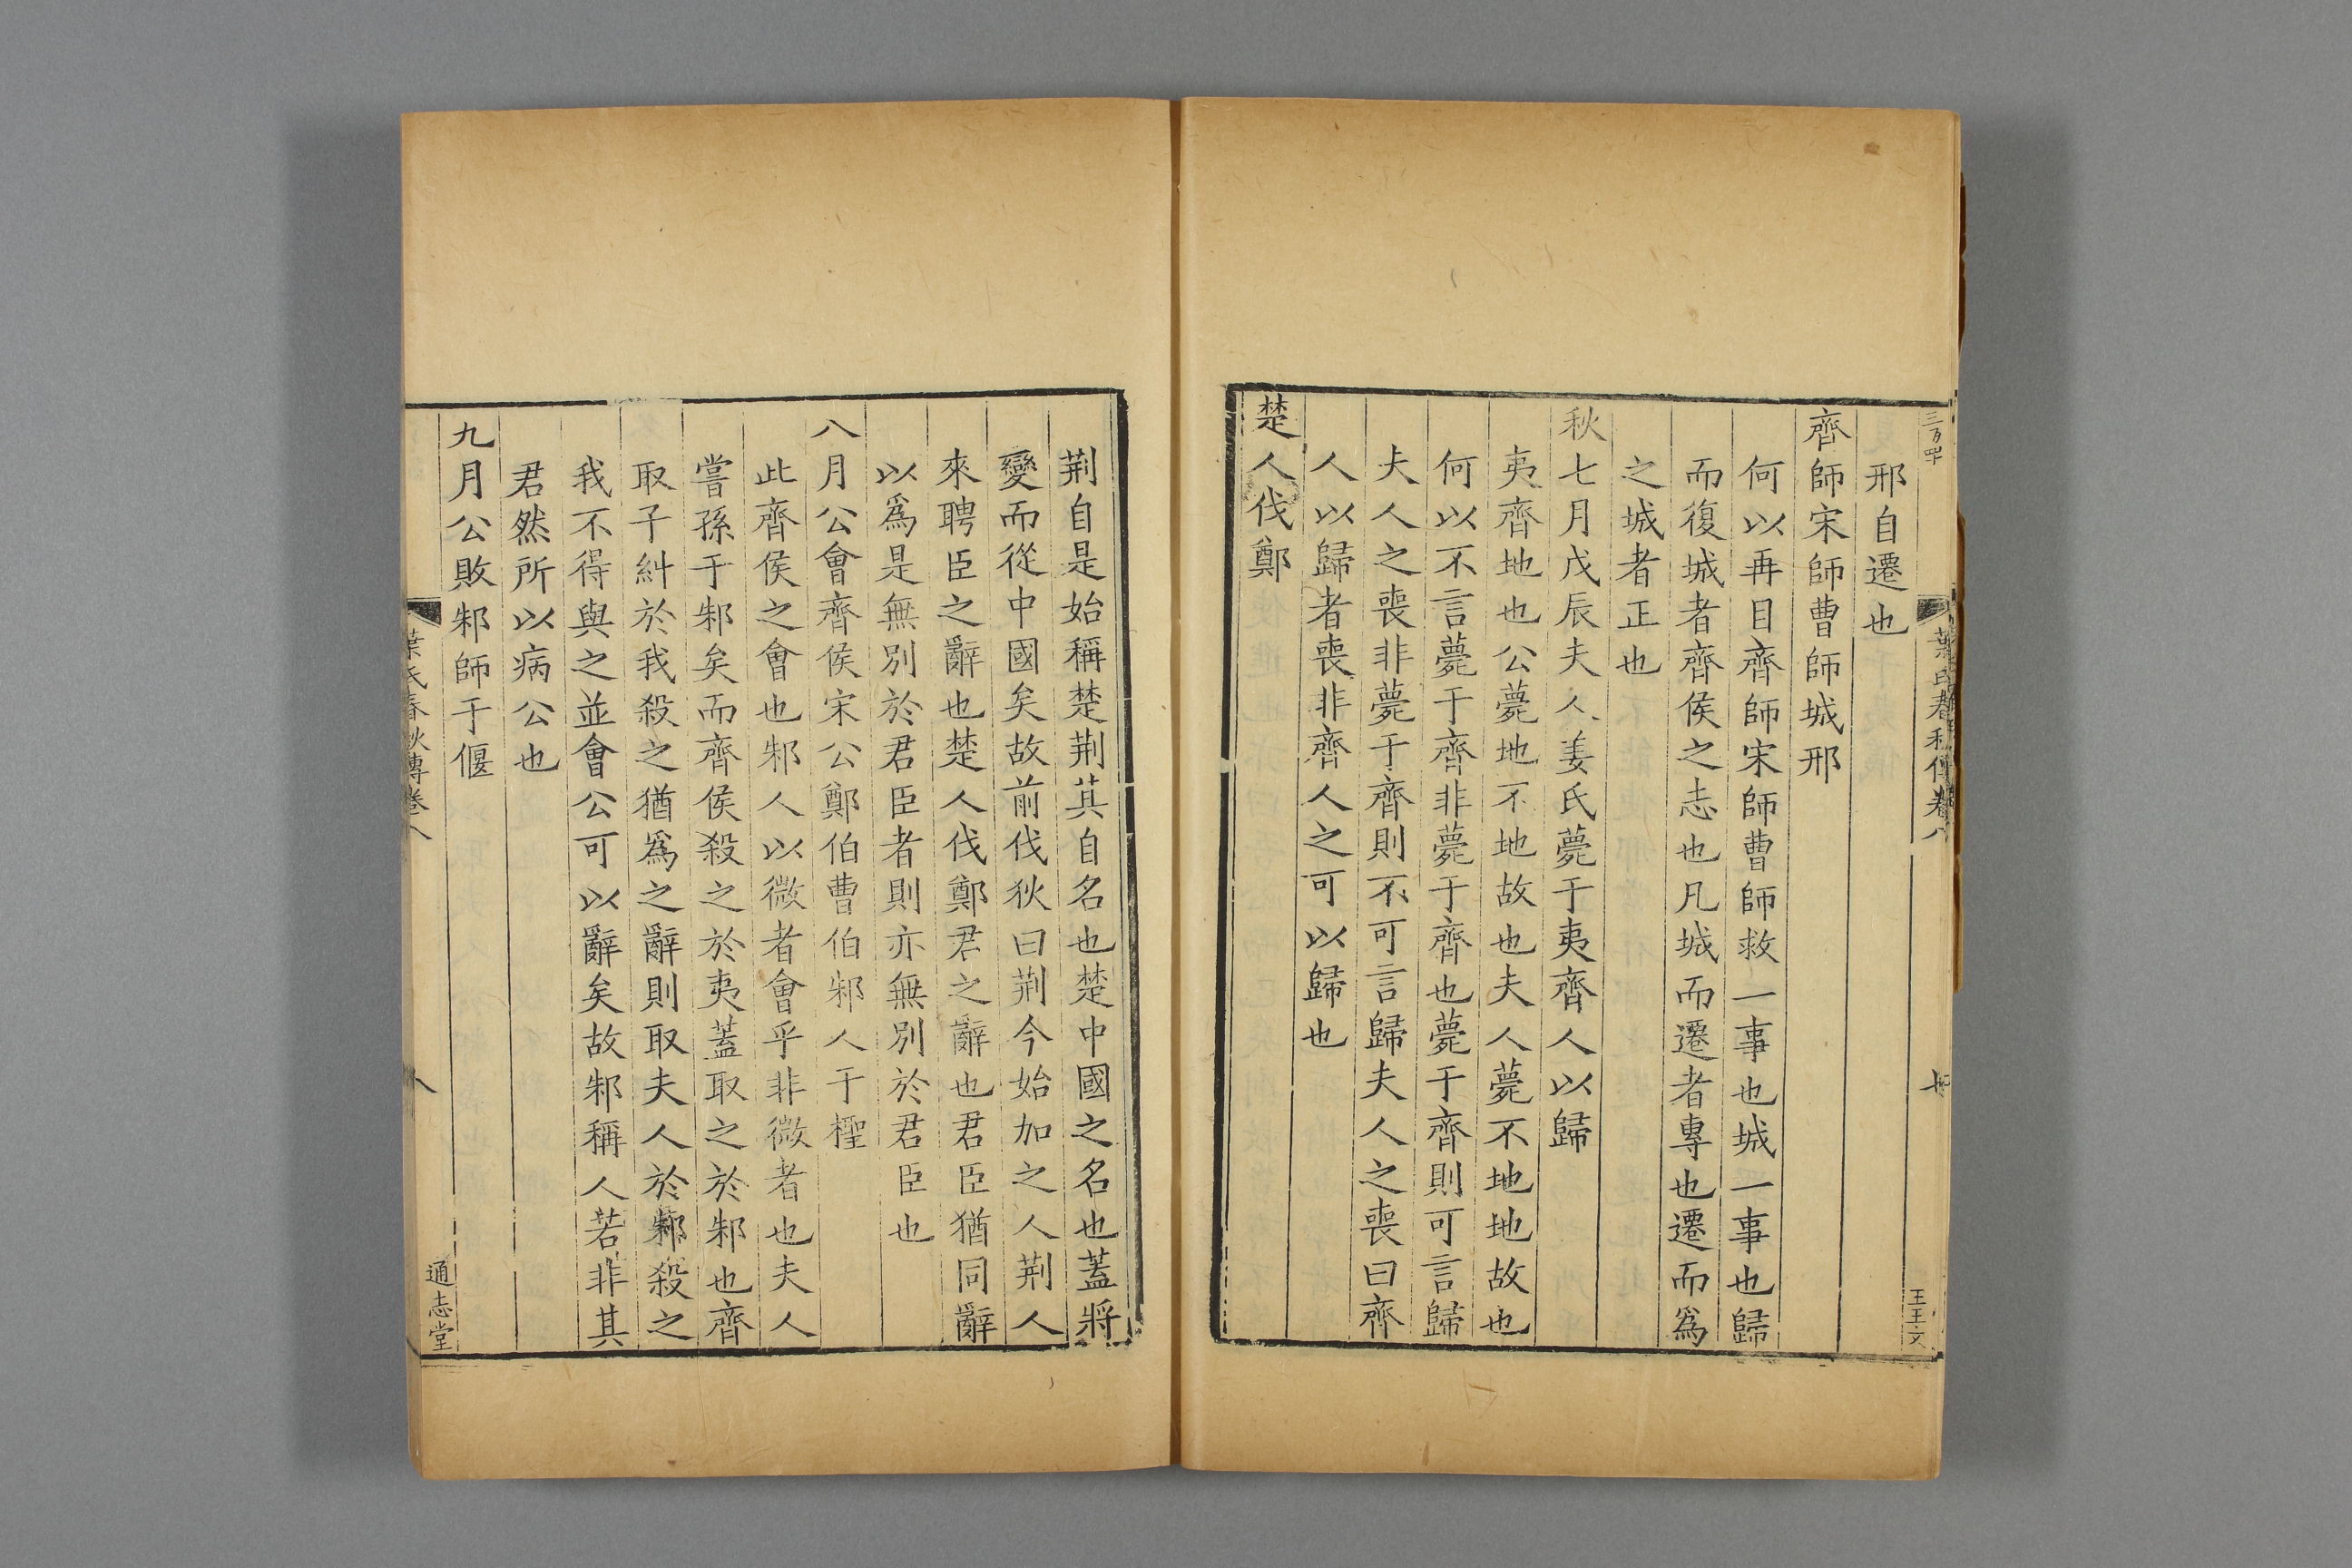 邢自遷也
齊師宋師曹師城邢
何以再目齊師宋師曹師救一事也城一事也歸
而復城者齊侯之志也凡城而遷者專也遷而爲
之城者正也
秋七月戊辰夫人姜氏薨于夷齊人以歸
夷齊地也公薨地不地故也夫人薨不地地故也
何以不言薨于齊非薨于齊也薨于齊則可言歸
夫人之喪非薨于齊則不可言歸夫人之喪曰齊
人以歸者喪非齊人之可以歸也
楚人伐鄭
荆自是始稱楚荆其自名也楚中國之名也蓋將
變而從中國矣故前伐狄曰荆今始加之人荆人
來聘臣之辭也楚人伐鄭君之辭也君臣猶同辭
以爲是無別於君臣者則亦無別於君臣也
八月公會齊侯宋公鄭伯曹伯邾人于檉
此齊侯之會也邾人以微者會乎非微者也夫人
嘗孫于邾矣而齊侯殺之於夷蓋取之於邾也齊
取子糾於我殺之猶爲之辭則取夫人於邾殺之
我不得與之並會公可以辭矣故邾稱人若非其
君然所以病公也
九月公敗邾師于偃
葉氏春秋傳卷八
八
通志堂